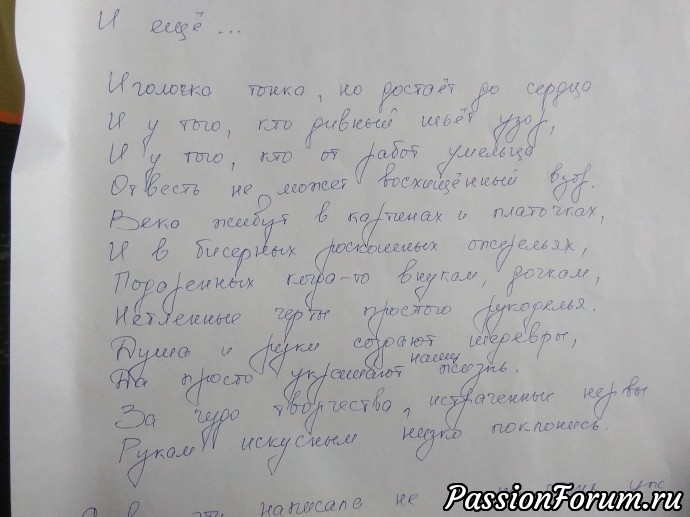 И ещё ...
Иголочка тонка, но достаёт до сердца
И у того, кто дивный шьёт узор,
И у того, кто от работ умельца
Отвесть не может восхищённый взор.
Века живут в картинах и платочках,
И в бисерных роскошных ожерельях,
Подаренных когда-то внукам, дочкам,
Нетленные черты простого рукоделья.
Душа и руки создают шедевры,
Да просто украшают нашу жизнь.
За чудо творчества, истраченные нервы
Рукам искусным низко поклонись.
написала не
PassionForum.ru